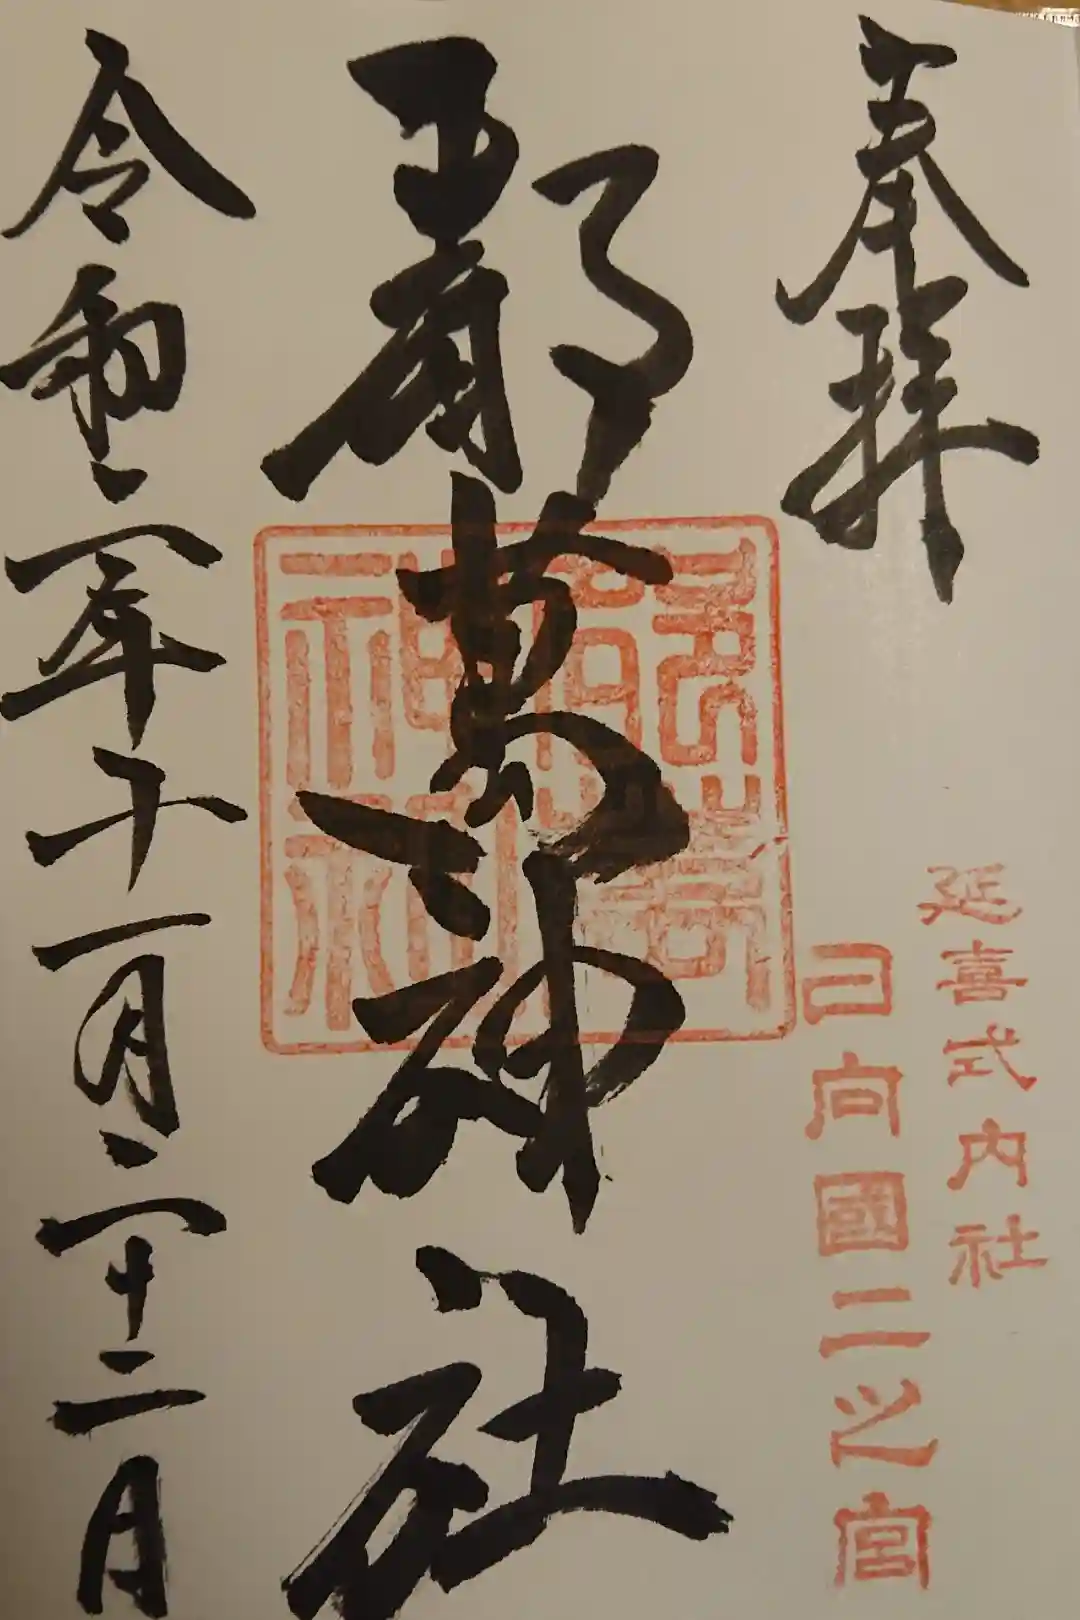 奉拝
延喜式内社
日向國二之宮
都萬神社
令和二年十一月二十二日